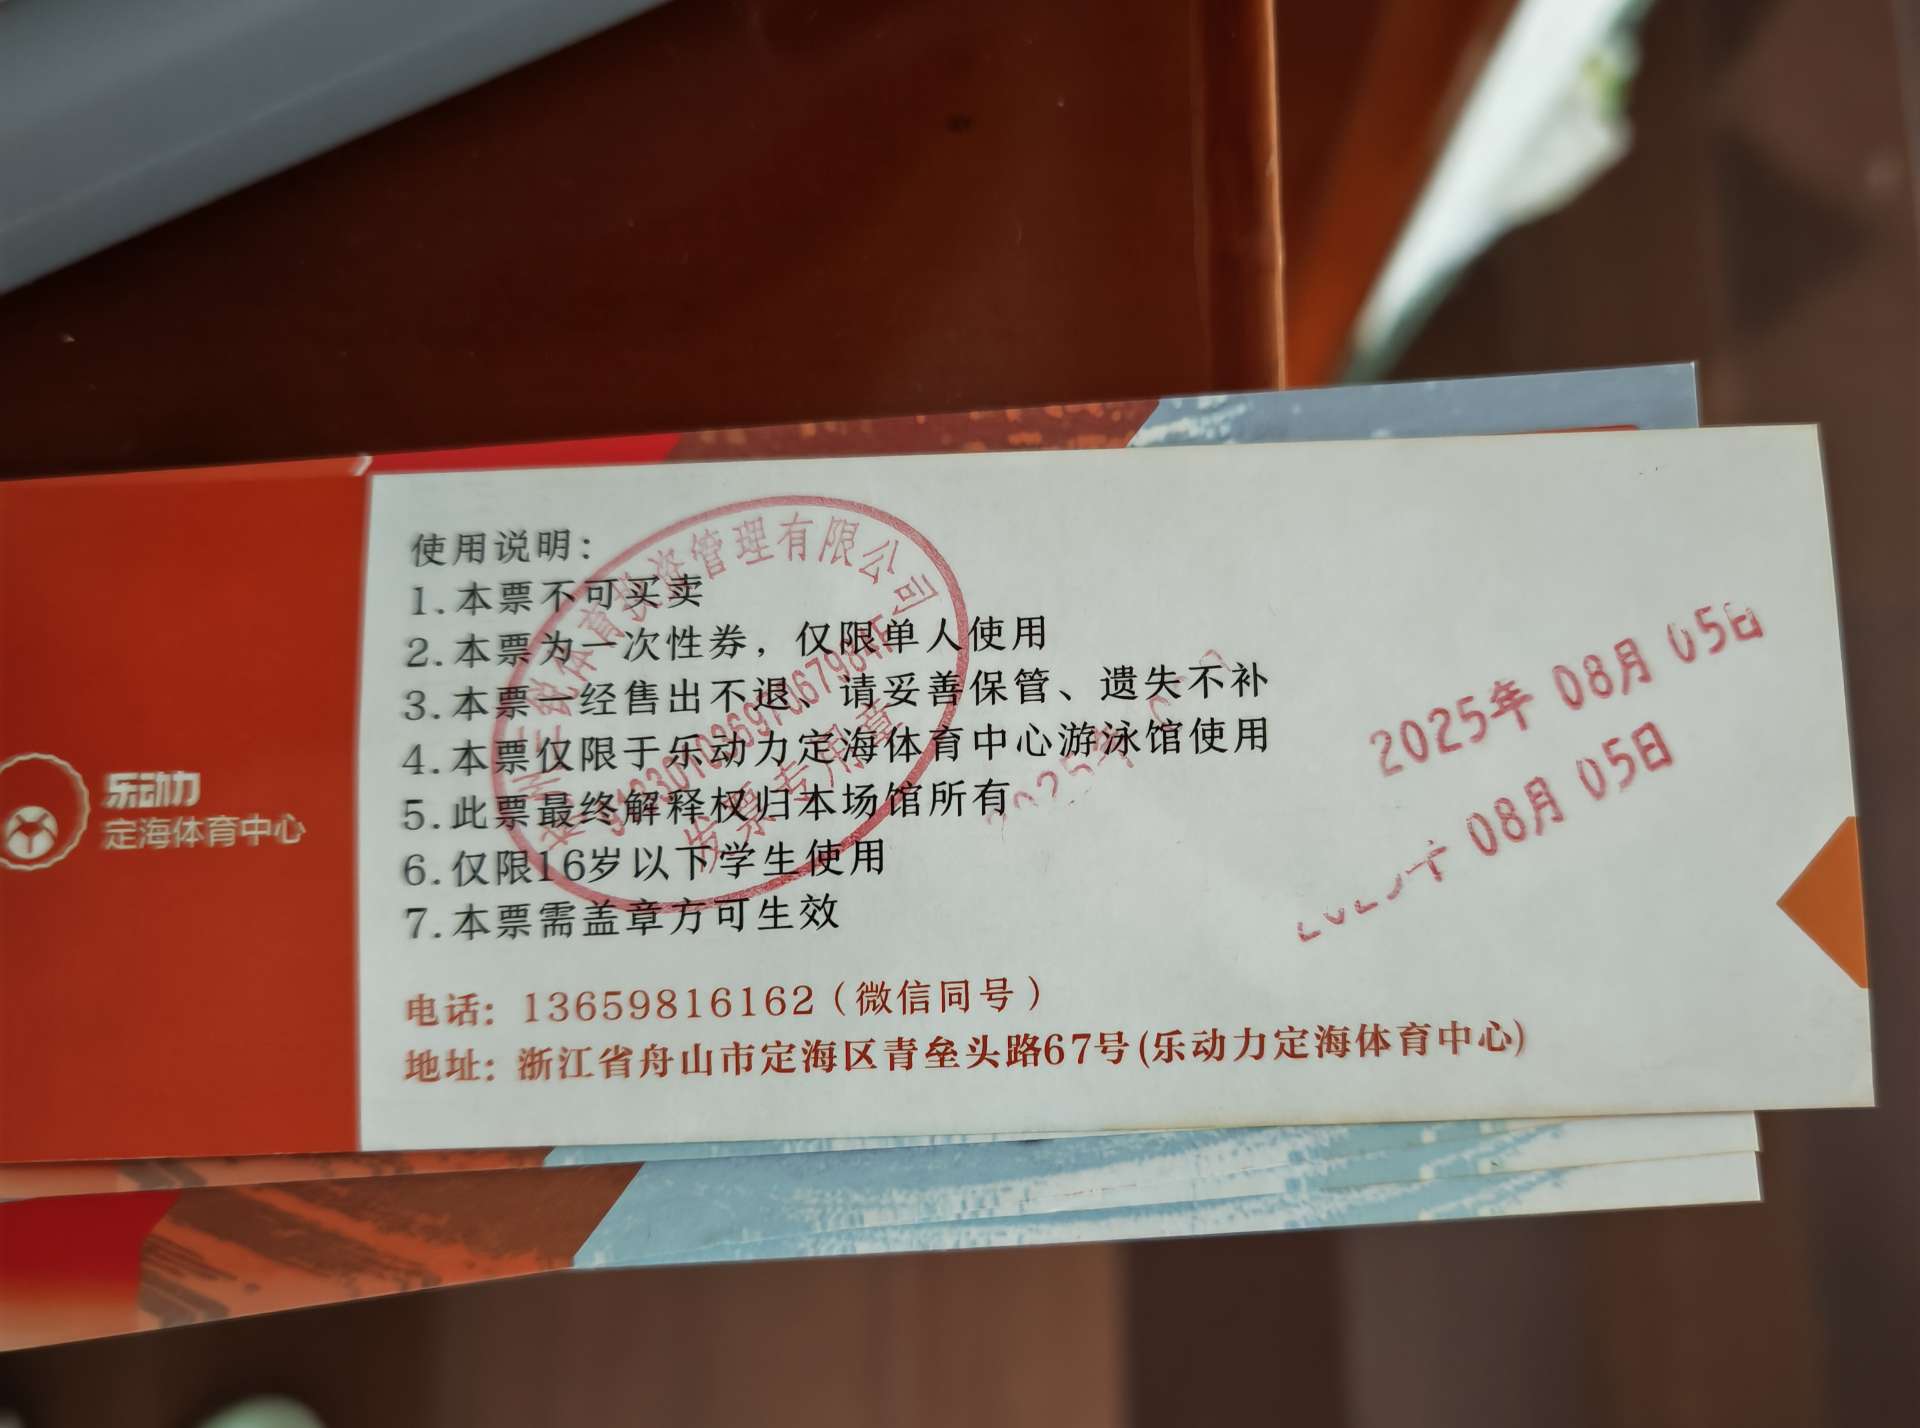 乐动力
定海体育中心
使用说明：
1.本票不可买卖
2.本票为一次性券，仅限单人使用
3.本票一经售出不退、请妥善保管、遗失不补
4.本票仅限于乐动力定海体育中心游泳馆使用
5.此票最终解释权归本场馆所有
6.仅限16岁以下学生使用
7.本票需盖章方可生效
电话：13659816162（微信同号）
地址：浙江省舟山市定海区青垒头路67号(乐动力定海体育中心)
体育投资管理有限公司
发票专用章
2025年
2025年 08月 05日
08月 05日